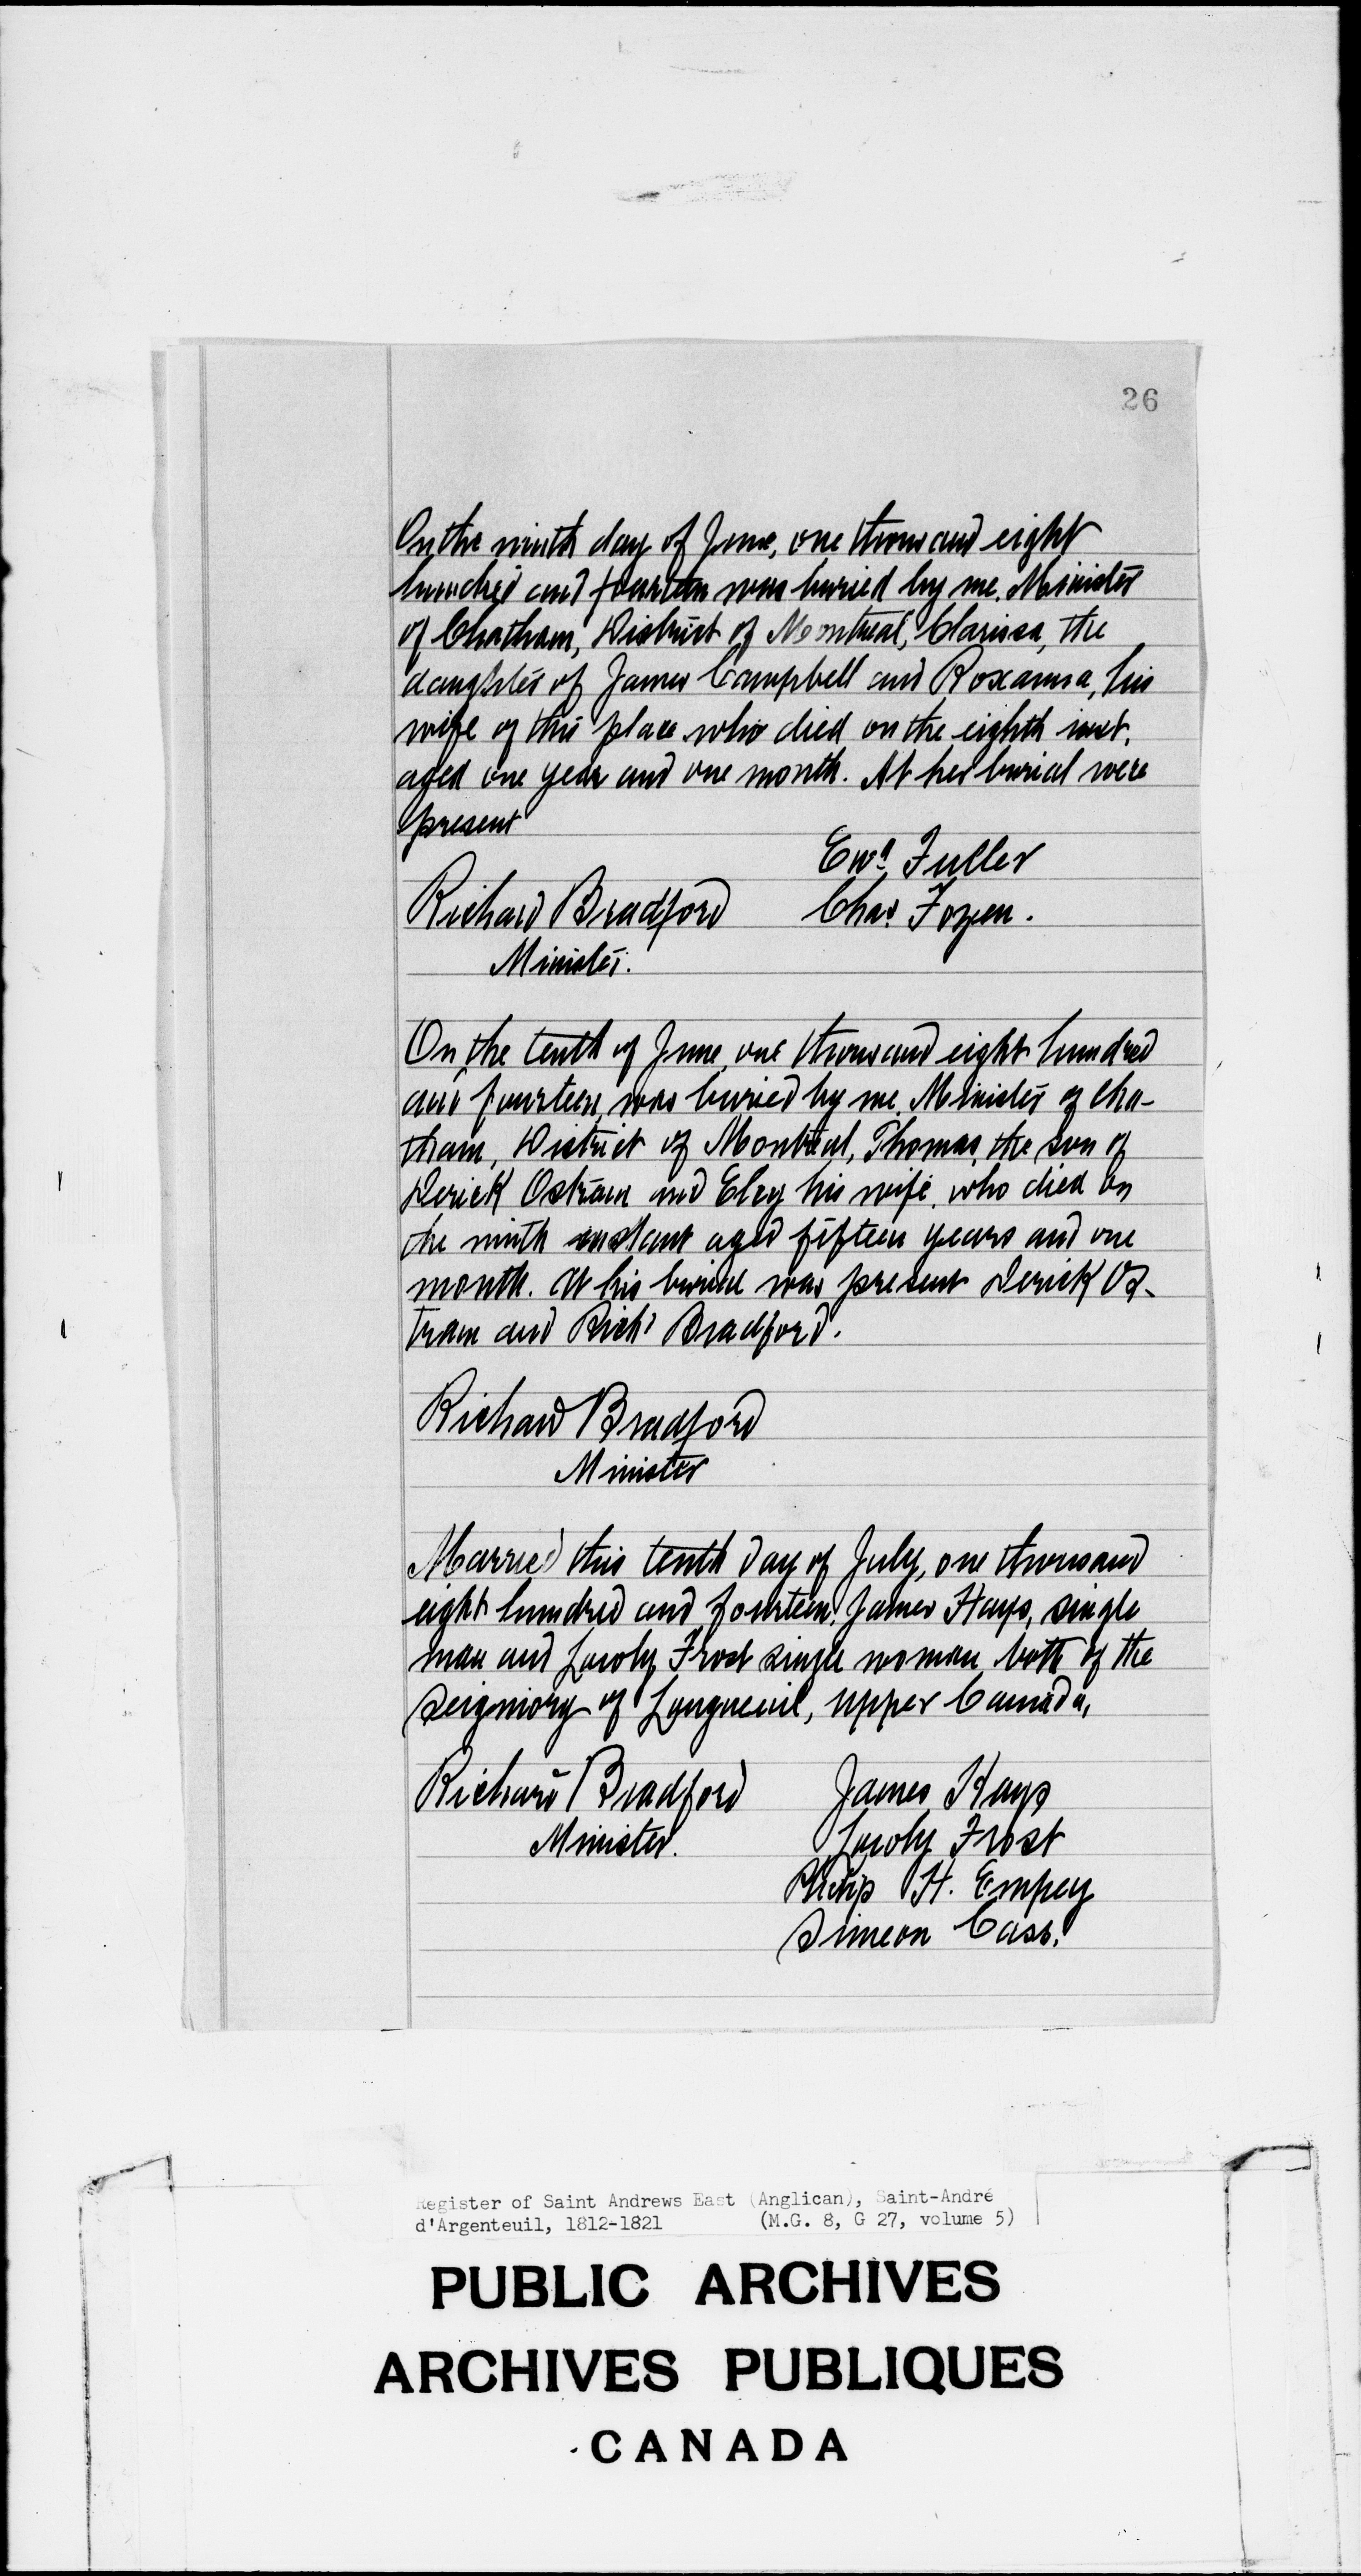 26
On the ninth day of June, one thousand eight
hundred and fourteen was buried by me, Minister
of Chatham, District of Montreal, Clarissa, the
daughter of James Campbell and Roxanna, his
wife of this place who died on the eighth inst.
aged one year and one month. At her burial were
present
Ewd Fuller
Richard Bradford Chas. Fozen.
Minister.
On the tenth of June, one thousand eight hundred
and fourteen, was buried by me, Minister of Cha-
tham, District of Montreal, Thomas, the son of
Derick Ostram and Eley his wife, who died on
the ninth instant aged fifteen years and one
month. At his burial was present Derick Os-
tram and Richd Bradford.
Richard Bradford
Minister
Married this tenth day of July, one thousand
eight hundred and fourteen, James Hays, single
man and Frost single woman both of the
Seigniory of Longueuil, Upper Canada,
Richard Bradford James Hays
Minister. Frost
Philip H. Empey
Simeon Cass.
Register of Saint Andrews East (Anglican), Saint-André
d'Argenteuil, 1812-1821 (M.G. 8, G 27, volume 5)
PUBLIC ARCHIVES
ARCHIVES PUBLIQUES
CANADA